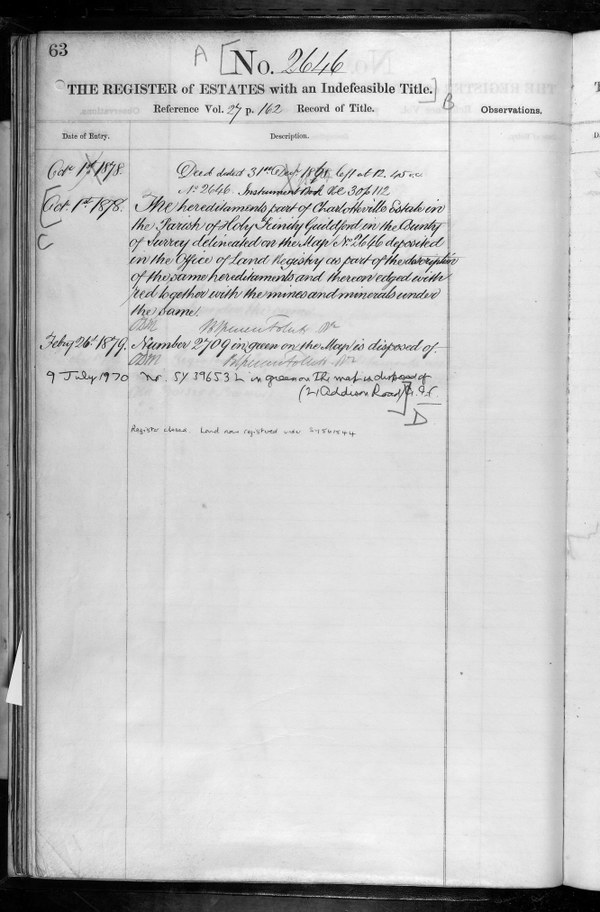 63
A [No. 2646
THE REGISTER of ESTATES with an Indefeasible Title.] B
Reference Vol. 27 p. 162 Record of Title.
Observations.
Date of Entry.
Description.
Octr 1st 1878.
Deed dated 31st 1868
No 2646. Instrument Book 30 p 112
[Oct. 1st 1878.
The hereditaments part of Charlotteville Estate in
the Parish of Holy Trinity Guildford in the County
of Surrey delineated on the Map No 2646 deposited
in the Office of Land Registry as part of the description
of the same hereditaments and thereon edged with
red together with the mines and minerals under
the same.
C
Feby 26th 1879.
Number 2709 in green on the Map is disposed of.
9 July 1970
Nr. SY 39653 L in green on the map is disposed of
(21 Addison Road)]
D
Register closed. Land now registered under